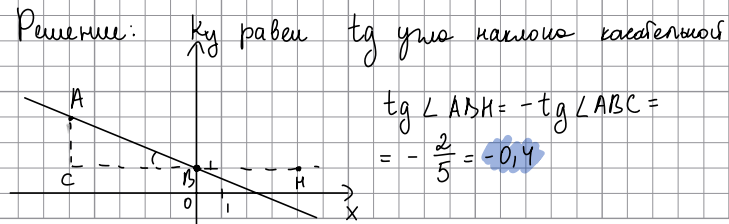 Решение: Ку равен tg угла наклона касательной
A
tg∠ABH = -tg∠ABC =
= - 2/5 = -0,4
C B 1 H
0 1 X